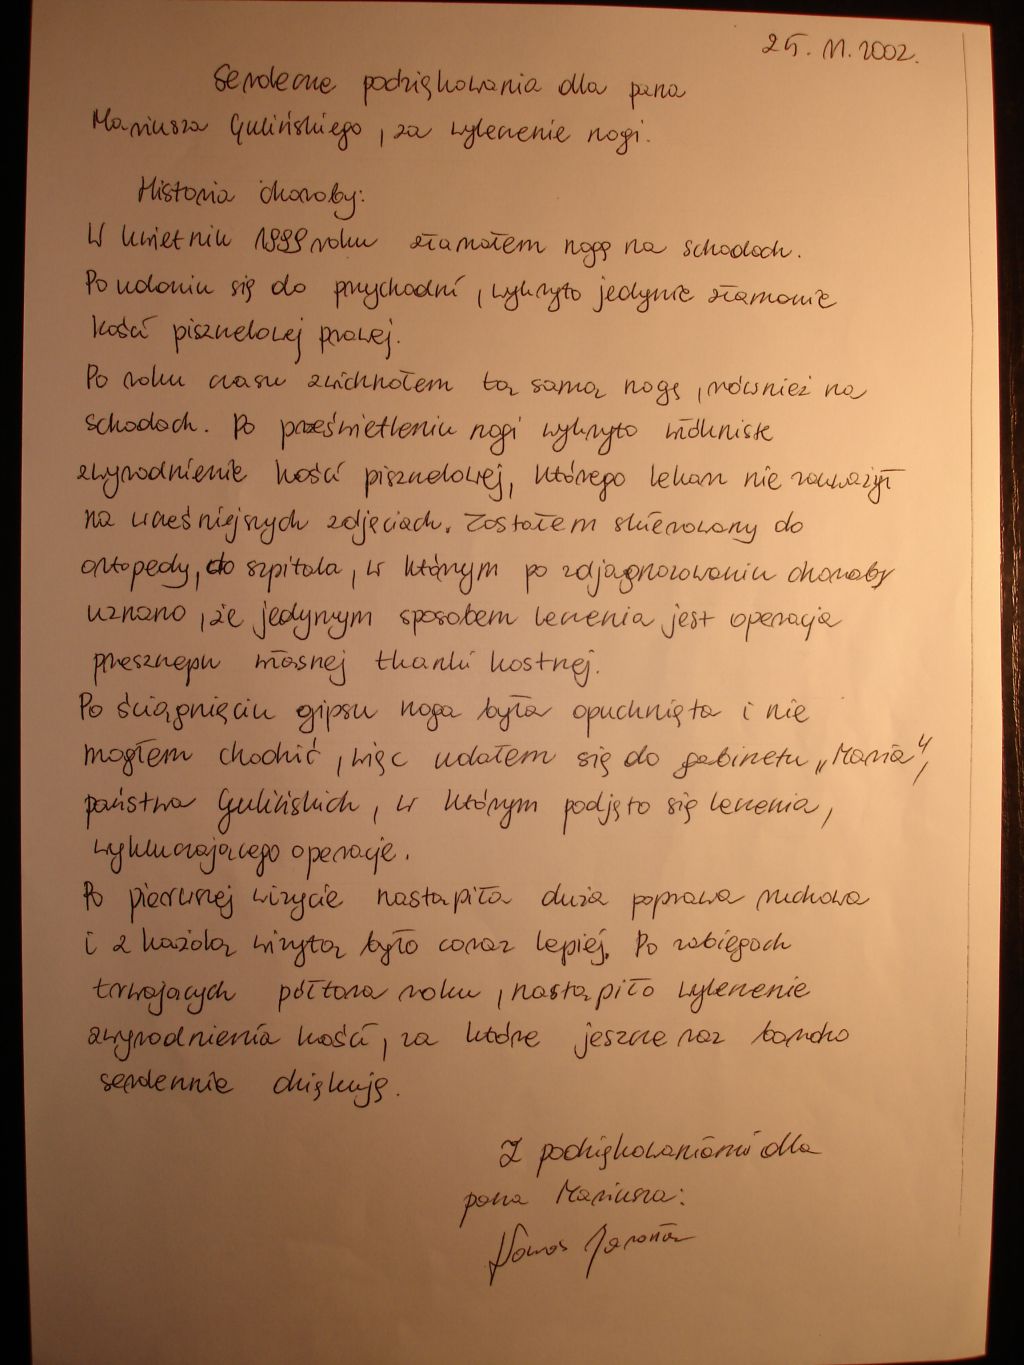 25. 11. 2002.
Serdeczne podziękowania dla pana
Mariusza Gulińskiego, za wyleczenie nogi.
Historia choroby:
W kwietniu 1999 roku złamałem nogę na schodach.
Po udaniu się do przychodni, wykryto jedynie złamanie
kości piszczelowej prawej.
Po roku czasu zwichnołem tą samą nogę, również na
schodach. Po prześwietleniu nogi wykryto włókniste
zwyrodnienie kości piszczelowej, którego lekarz nie zauważył
na wcześniejszych zdjęciach. Zostałem skierowany do
ortopedy, do szpitala, w którym po zdjagnozowaniu choroby
uznano, że jedynym sposobem leczenia jest operacja
przeszczepu własnej tkanki kostnej.
Po ściągnięciu gipsu noga była opuchnięta i nie
mogłem chodzić, więc udałem się do gabinetu „Maria",
państwa Gulińskich, w którym podjęto się leczenia,
wykluczającego operacje.
Po pierwszej wizycie nastąpiła duża poprawa ruchowa
i z każdą wizytą było coraz lepiej. Po zabiegach
trwających półtora roku, nastąpiło wyleczenie
zwyrodnienia kości, za które jeszcze raz bardzo
serdecznie dziękuję.
Z podziękowaniami dla
pana Mariusza: